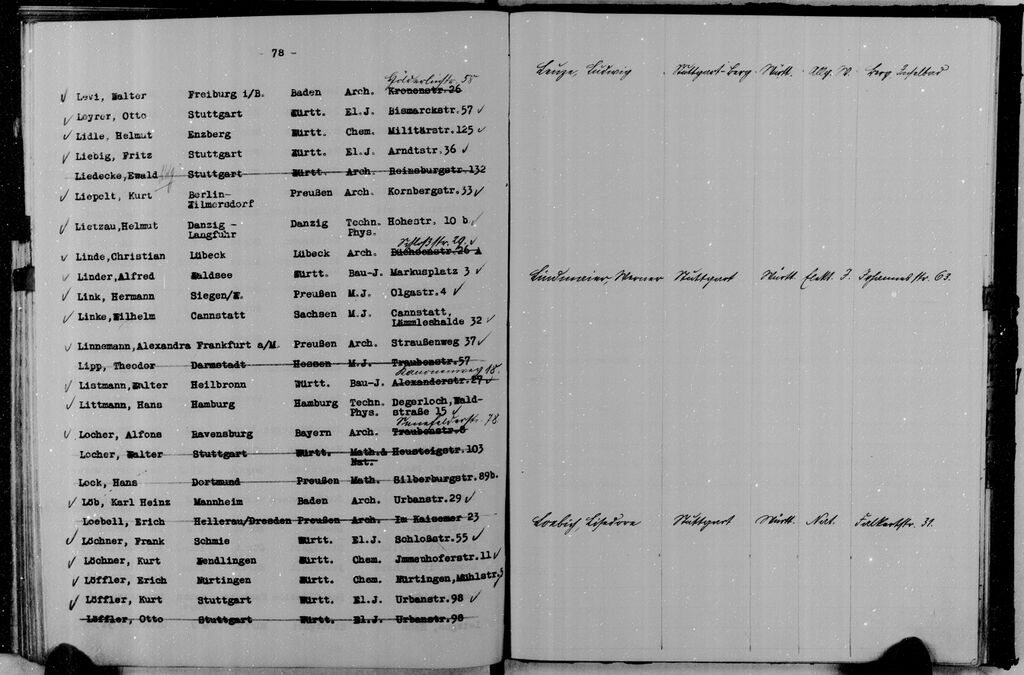 - 78 -
Hölderlinstr. 55
Levi, Walter Freiburg i/B. Baden Arch. Kronenstr.26
Leyrer, Otto Stuttgart Württ. El.J. Bismarckstr.57
Lidle, Helmut Enzberg Württ. Chem. Militärstr.125
Liebig, Fritz Stuttgart Württ. El.J. Arndtstr.36
Liedecke,Ewald Stuttgart Württ. Arch. Reinsburgstr.132
Liepelt, Kurt Berlin- Preußen Arch. Kornbergstr.33
Wilmersdorf
Lietzau,Helmut Danzig - Danzig Techn. Hohestr. 10 b
Langfuhr Phys.
Schloßstr. 29
Linde,Christian Lübeck Lübeck Arch. Büchsenstr.26 A
Linder,Alfred Waldsee Württ. Bau-J. Markusplatz 3
Link, Hermann Siegen/W. Preußen M.J. Olgastr.4
Linke,Wilhelm Cannstatt Sachsen M.J. Cannstatt,
Lämmleshalde 32
Linnemann,Alexandra Frankfurt a/M. Preußen Arch. Straußenweg 37
Lipp, Theodor Darmstadt Hessen M.J. Traubenstr.57
Kanonenweg 18
Listmann,Walter Heilbronn Württ. Bau-J. Alexanderstr.27
Littmann, Hans Hamburg Hamburg Techn. Degerloch,Wald-
Phys. straße 15
Senefelderstr. 78
Locher, Alfons Ravensburg Bayern Arch. Traubenstr.8
Locher, Walter Stuttgart Württ. Math.& Heusteigstr.103
Nat.
Lock, Hans Dortmund Preußen Math. Silberburgstr.89b.
Löb, Karl Heinz Mannheim Baden Arch. Urbanstr.29
Loebell, Erich Hellerau/Dresden Preußen Arch. Im Kaisemer 23
Löchner, Frank Schmie Württ. El.J. Schloßstr.55
Löchner, Kurt Wendlingen Württ. Chem. Immenhoferstr.11
Löffler, Erich Nürtingen Württ. Chem. Nürtingen,Mühlstr.
Löffler, Kurt Stuttgart Württ. El.J. Urbanstr.98
Löffler, Otto Stuttgart Württ. El.J. Urbanstr.98
Leuze, Ludwig Stuttgart-Berg Württ. Allg. W. Berg Inselbad
Lindmaier, Werner Stuttgart Württ. Elekt. J. Johannesstr. 63.
Loebich, Lisedore Stuttgart Württ. Nat. Falkertstr. 31.